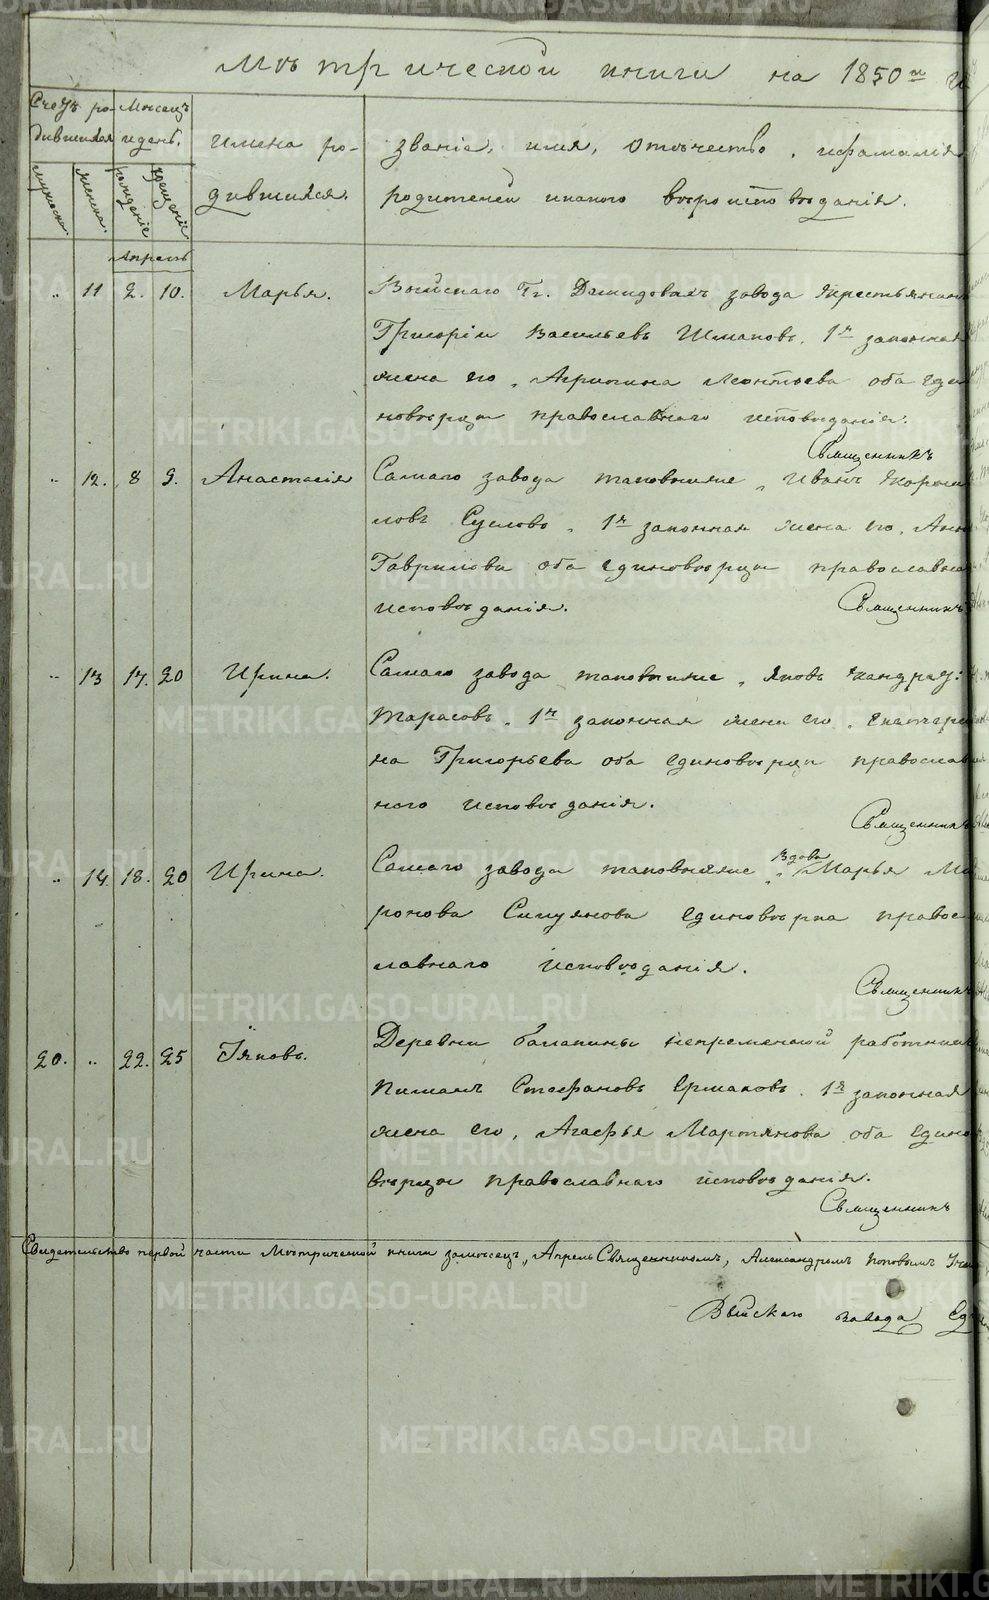 Метрической книги на 1850й
Счетъ ро- Месецъ имена ро- званіе, имя, отъчество, ифамилія
дившихся идень. дившихся. родителей икакого вѣроисповѣданія.
мужеска. женска. рожденіе крещеніе
Апрель
„ 11 2. 10. Марья. Выйскаго Гг. Демидовыхъ завода крестьянинъ
Григорій Васильевъ Шмаковъ. 1й законная
жена его, Агрипина Леонтьева оба еди
новѣрцы православнаго исповѣданія.
Священникъ
„ 12. 8 9. Анастасія Самаго завода таковыеже „ Иванъ Корони
ловъ Суслово, 1й законная жена его, Анн
Гаврилова оба единовѣрцы православна
исповѣданія. Священникъ
„ 13 17. 20 Ирина. Самаго завода таковыеже „ Яковъ Кандрат:
Тарасовъ. 1й законная жена его, Екатери
на Григорьева оба единовѣрцы православ
наго исповѣданія.
Священникъ
„ 14. 18. 20 Ирина. Самаго завода таковыеже „ вдова Марья Ми
ронова единовѣрка правос
лавнаго исповѣданія.
Священникъ
20. „ 22. 25 Іяковъ. Деревни балакины непременной работникъ
Пиманъ Стефановъ Ермаковъ. 1й законная
жена его, Агафья Мартянова оба Едино
вѣрцы православнаго исповѣданія.
Священникъ
Свидетельство первой части Метрической книги замесецъ „ Апрель Священникомъ, Александромъ Поповымъ
Выйскаго завода Ед
METRIKI.GASO-URAL.RU